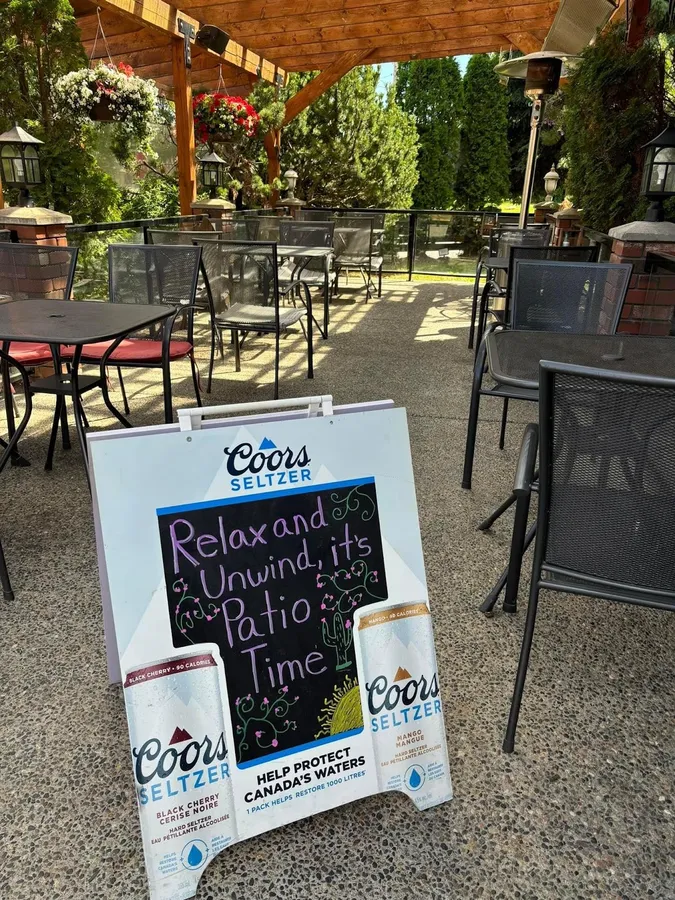 Coors
SELTZER
Relax and
Unwind, it's
Patio
Time
BLACK CHERRY • 90 CALORIES
Coors
SELTZER
BLACK CHERRY
CERISE NOIRE
HARD SELTZER
EAU PÉTILLANTE ALCOOLISÉE
HELP PROTECT
CANADA'S WATERS
1 PACK HELPS RESTORE 1000 LITRES
Coors
SELTZER
MANGO
MANGUE
HARD SELTZER
EAU PÉTILLANTE ALCOOLISÉE